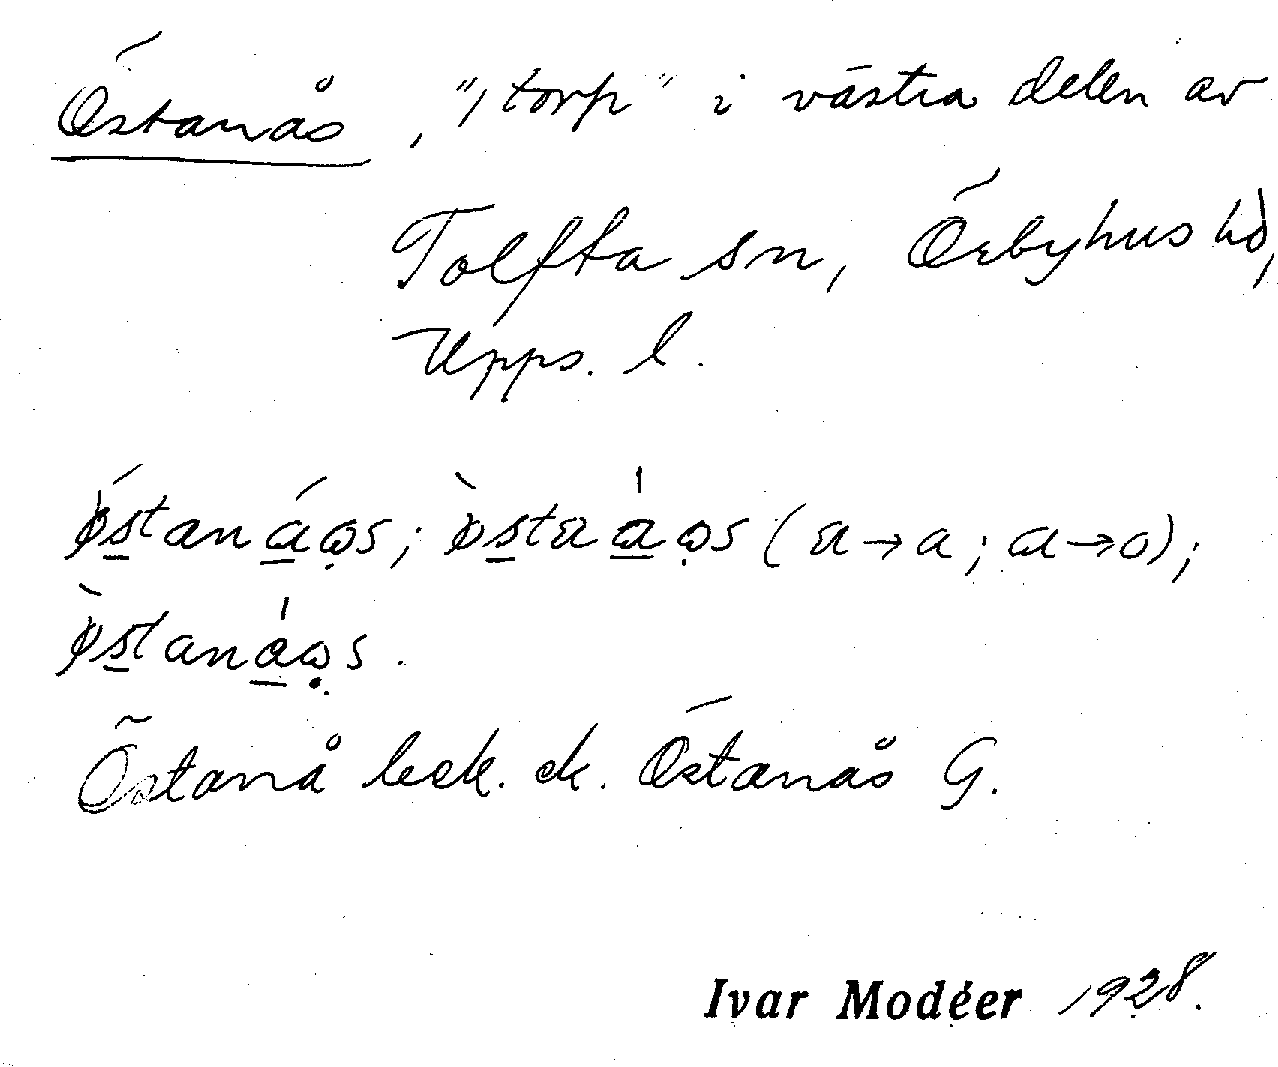 Östanås, "1 torp" i västra delen av
Tolfta sn, Örbyhus hd,
Upps. l.
ǿstanáǫs; ø̀staa̍ǫs (a→a; a→o);
ø̀stana̍ǫs.
Östanå beck. ek. Östanås G.
Ivar Modéer 1928.